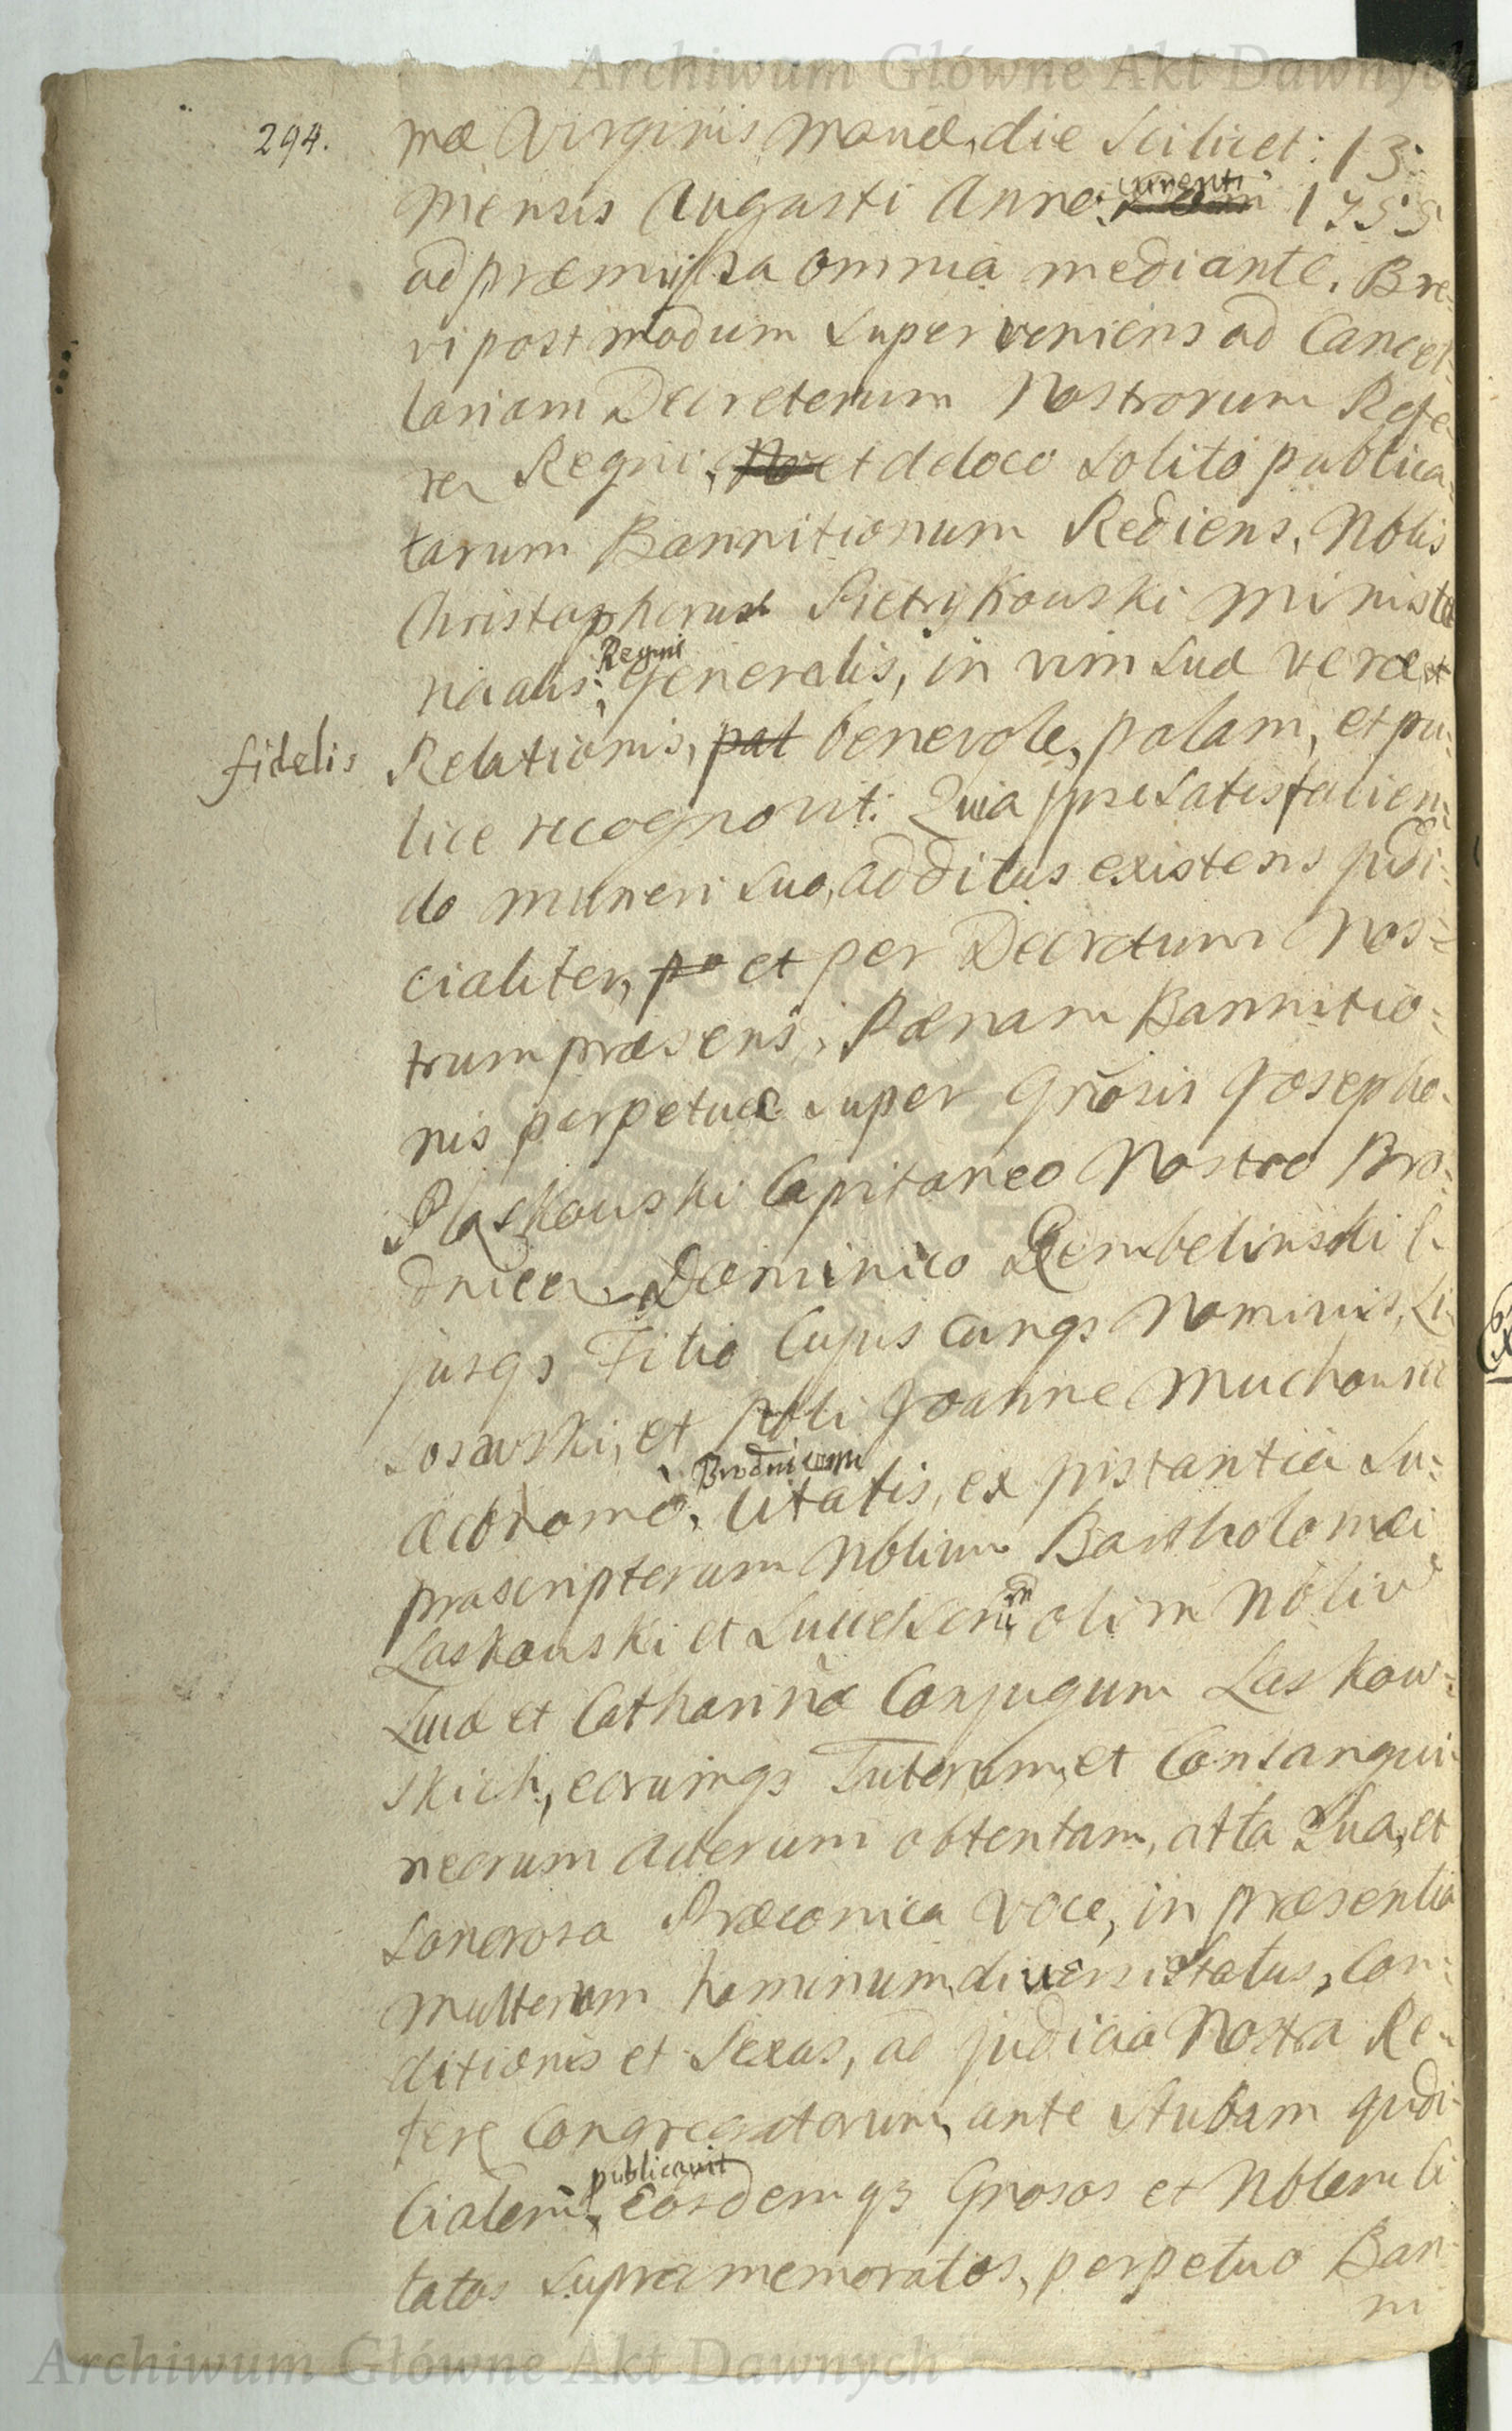 Archiwum Główne Akt Dawnych
294.
mæ Virginis Mariæ, die Scilicet: 13:
Mensis Augusti Anno currenti 1755
ad præmissa omnia mediante. Bre-
vi post modum Superveniens ad Cancel-
lariam Decretorum Nostrorum Refe-
ren Regni, et de loco Solito publica-
tarum Bannitionum Rediens, Nblis
Christopherus Pietrykowski Ministe
rialis Regni Generalis, in vim Suæ veræ et
fidelis Relationis, pat benevole, palam, et pu-
lice recognovit: Quia ipse Satisfacien-
do muneri Suo, additus existens Judi-
cialiter, po et per Decretum Nos-
trum præsens, Pænam Bannitio-
nis perpetuæ Super Grosis Josepho
Plaskowski Capitaneo Nostro Bro-
dnicen Dominico Rembelinski
jusqs Filio Cujus cunqs Nominis,
Losowski, et Nbli Joanne Muchowski
œconomo, Brodnicem Citatis, ex jnstantia Su-
prascriptorum Nblium Bartholomæi
Laskowski et Succesorum olim Nbliu
Lucæ et Catharinæ Conjugum Laskow-
skich, eorumqs Tutorum, et Consangui-
neorum Actorum obtentam, alta Sua, et
Sonorosa Præconica voce, in præsentia
multorum hominum, diversi Status, Con-
ditionis et Sexus, ad judicia Nostra Re-
feren Congregatorum, ante Stubam Judi-
cialem, publicavit Eosdemqs Grosos et Nblem Ci
tatos Supra memoratos, perpetuo Ban
ni
Archiwum Główne Akt Dawnych